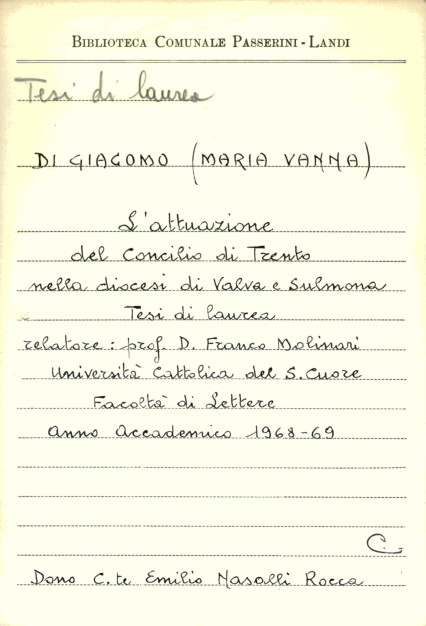 BIBLIOTECA COMUNALE PASSERINI - LANDI
Tesi di laurea
DI GIACOMO (MARIA VANNA)
L'attuazione
del Concilio di Trento
nella diocesi di Valva e Sulmona
Tesi di laurea
relatore : prof. D. Franco Molinari
Università Cattolica del S. Cuore
Facoltà di Lettere
Anno Accademico 1968-69
C.
Dono C.te Emilio Nasalli Rocca